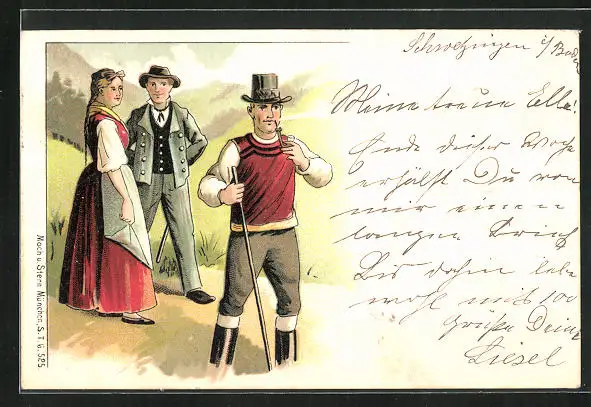 Schwetzingen i/ Baden
Meine treue Ella!
Ende dieser Woche
erhälst Du von
mir einen
langen Brief
Bis dahin lebe
wohl mit 100
Grüße Deine
Liesel
Moch u. Stern München, S. T. G. 525